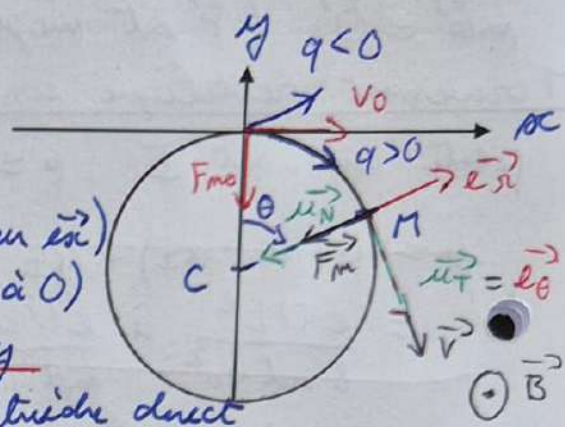 y
q < 0
V₀
x
q > 0
Fm₀
θ
u⃗_N
e⃗_r
M
F⃗_m
C
u⃗_T = e⃗_θ
V⃗
B⃗
e⃗x)
à 0)
y
trièdre direct